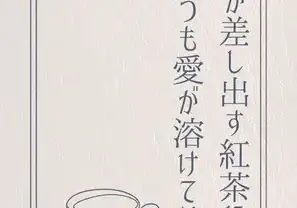 が差し出す紅茶
うも愛が溶けて